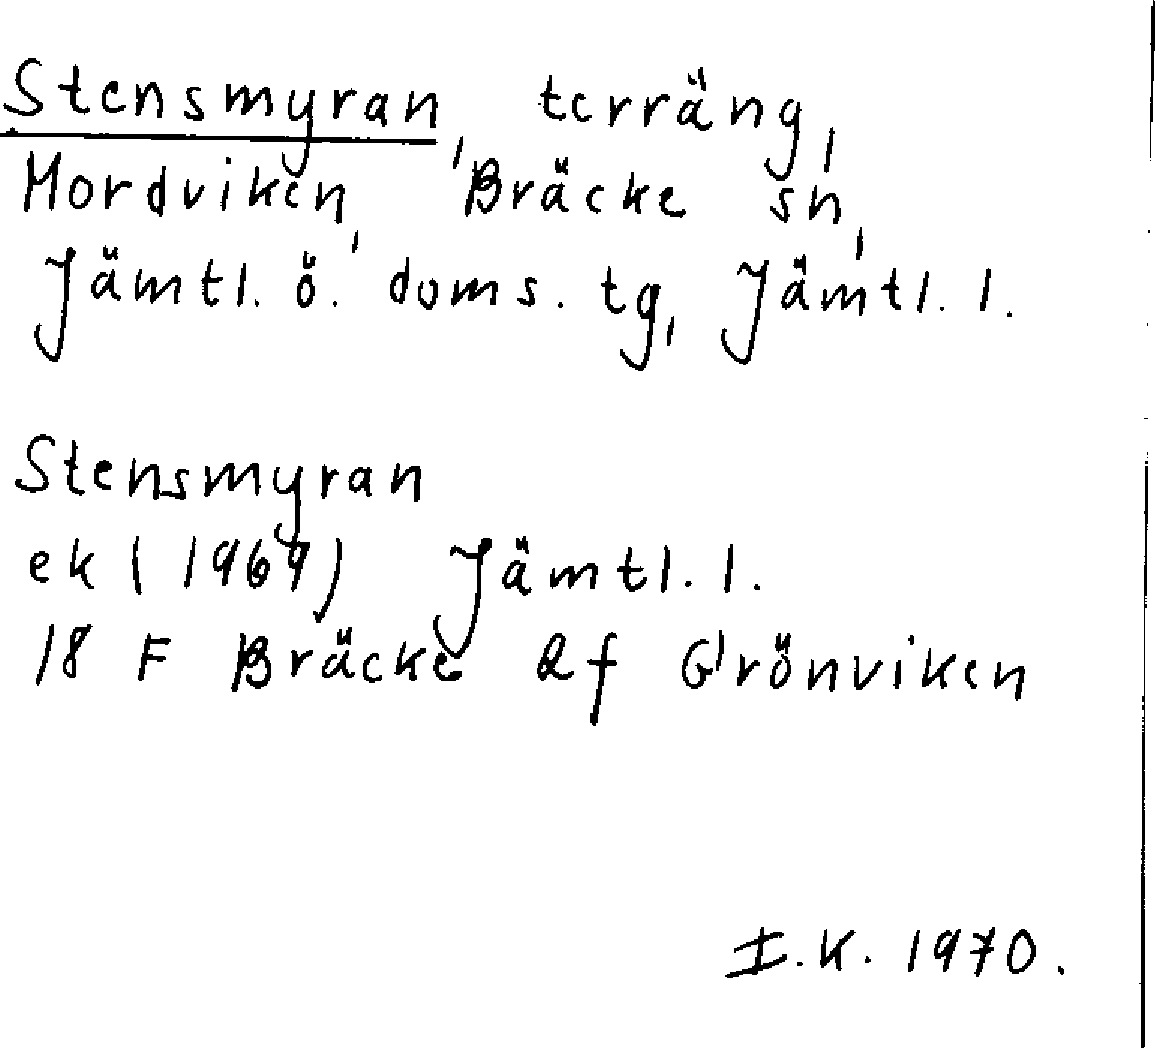 Stensmyran, terräng,
Mordviken, Bräcke sn,
Jämtl. ö. doms. tg, Jämtl. l.
Stensmyran
ek (1969) Jämtl. l.
18 F Bräcke 2f Grönviken
I.K. 1970.